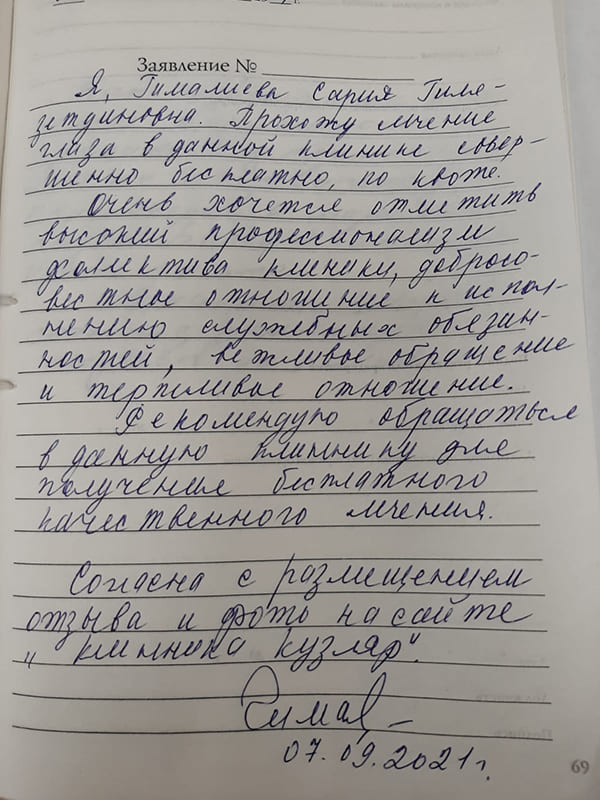 Заявление №
Я, Гималиева Сария Гиля-
зетдиновна. Прохожу лечение
глаза в данной клинике совер-
шенно бесплатно, по квоте.
Очень хочется отметить
высокий профессионализм
коллектива клиники, добросо-
вестное отношение к испол-
нению служебных обязан-
ностей, вежливое обращение
и терпеливое отношение.
Рекомендую обращаться
в данную клинику для
получения бесплатного
качественного лечения.
Согласна с размещением
отзыва и фото на сайте
„клиника кузляр".
07.09.2021г.
69